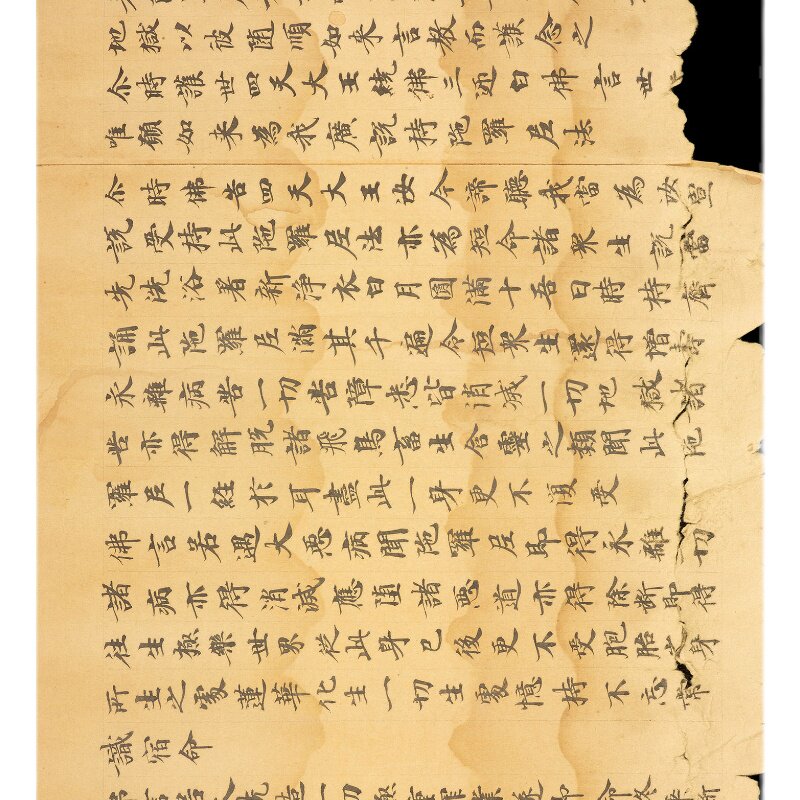 地獄以彼随順如来言教而護念之
尒時護世四天大王繞佛三迊白佛言世
唯願如来為我廣說持陁羅尼法
尒時佛告四天大王汝今諦聽我當為汝宣
說受持此陁羅尼法亦為短命諸衆生說當
先洗浴著新淨衣白月圓滿十五日時持齋
誦此陁羅尼滿其千遍令短衆生還得增壽
永離病苦一切苦障悉皆消滅一切地獄諸
苦亦得解脫諸飛鳥畜生含靈之類聞此陁
羅尼一經於耳盡此一身更不復受
佛言若遇大惡病聞陁羅尼即得永離切
諸病亦得消滅應堕諸惡道亦得除断即得
往生極樂世界從此身已後更不受胞胎之身
所生之處蓮華化生一切生處憶持不忘常
識宿命